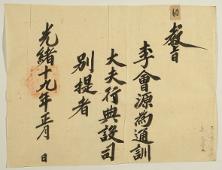 教旨
李會源為通訓
大夫行典設司
別提者
光緒十九年正月 日